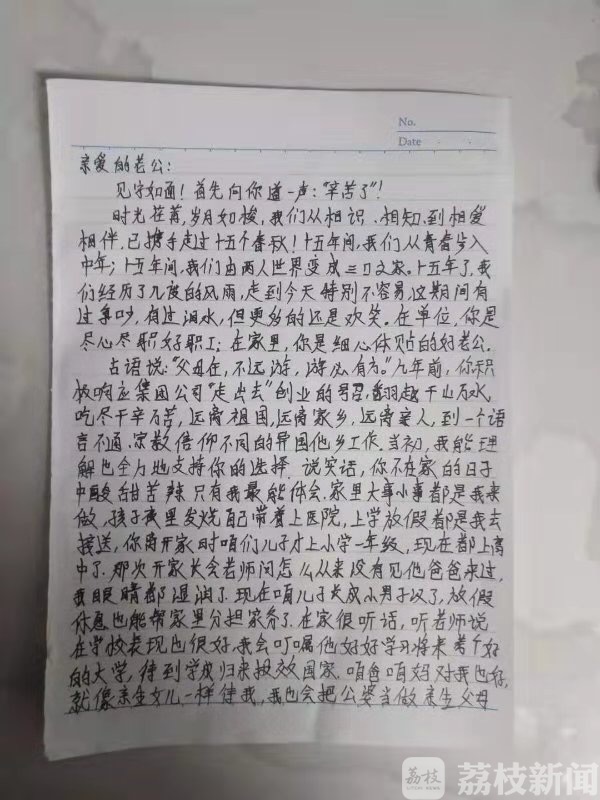 No.
Date
亲爱的老公:
见字如面!首先向你道一声:“辛苦了”!
时光荏苒,岁月如梭,我们从相识、相知、到相爱
相伴,已携手走过十五个春秋!十五年间,我们从青春步入
中年;十五年间,我们由两人世界变成三口之家。十五年了,我
们经历了几度的风雨,走到今天特别不容易,这期间有
过争吵,有过泪水,但更多的还是欢笑。在单位,你是
尽心尽职好职工;在家里,你是细心体贴的好老公。
古语说:“父母在,不远游,游必有方。”九年前,你积
极响应集团公司“走出去”创业的号召,翻越千山万水,
吃尽千辛万苦,远离祖国,远离家乡,远离亲人,到一个语
言不通、宗教信仰不同的异国他乡工作。当初,我能理
解也全力地支持你的选择。说实话,你不在家的日子
中酸甜苦辣只有我最能体会。家里大事小事都是我来
做,孩子夜里发烧自己带着上医院,上学放假都是我去
接送,你离开家时咱们儿子才上小学一年级,现在都上高
中了。那次开家长会老师问怎么从来没有见他爸爸来过,
我眼睛都湿润了。现在咱儿子长成小男子汉了,放假
休息也能帮家里分担家务了。在家很听话,听老师说
在学校表现也很好。我会叮嘱他好好学习将来考个好
的大学,待到学成归来报效国家。咱爸咱妈对我也好,
就像亲生女儿一样待我,我也会把公婆当做亲生父母
荔枝
荔枝新闻